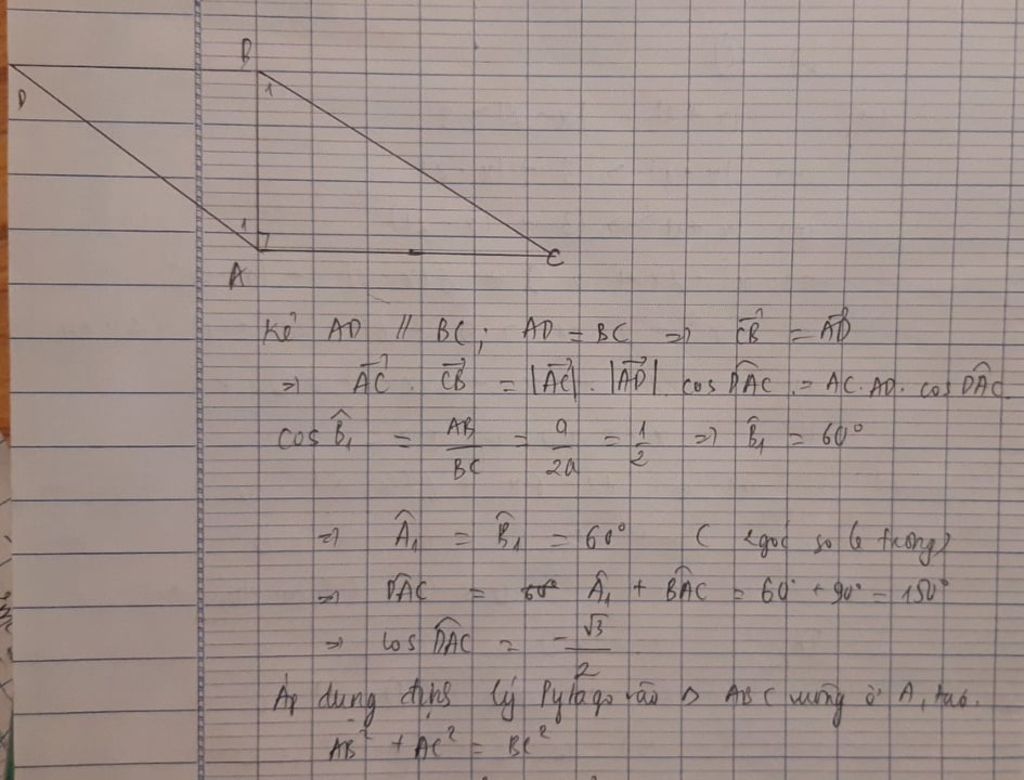 B
D
1
1
A
C
Kẻ AD // BC; AD = BC => \vec{CB} = \vec{AD}
=> \vec{AC} . \vec{CB} = |\vec{AC}| . |\vec{AD}| . cos \widehat{DAC} = AC . AD . cos \widehat{DAC}
cos \widehat{B}₁ = AB/BC = a/2a = 1/2 => \widehat{B}₁ = 60°
=> \widehat{A}₁ = \widehat{B}₁ = 60° ( góc so le trong)
=> \widehat{DAC} = \widehat{A}₁ + \widehat{BAC} = 60° + 90° = 150°
=> cos \widehat{DAC} = - √3/2
Áp dụng định lý Pytago vào Δ ABC vuông ở A,
AB² + AC² = BC²